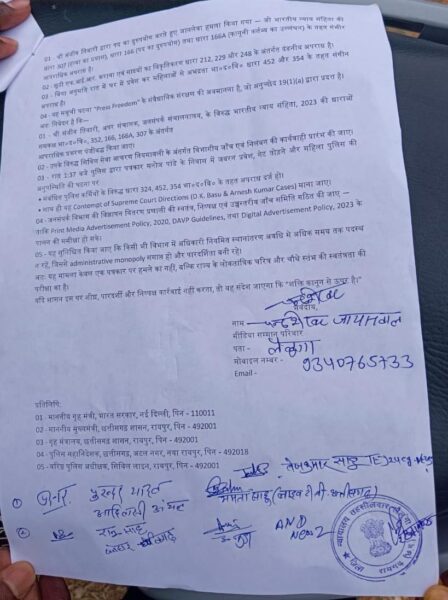 01 - श्री संजीव तिवारी द्वारा पद का दुरुपयोग करते हुए जानलेवा हमला किया गया — जो भारतीय न्याय संहिता की
धारा 307 (हत्या का प्रयास), धारा 166 (पद का दुरुपयोग) तथा धारा 166A (कानूनी कर्तव्य का उल्लंघन) के तहत संगीन
आपराधिक अपराध है।
02 - झूठी एफ.आई.आर. कराना एवं साक्ष्यों का विकृतिकरण धारा 212, 229 और 248 के अंतर्गत दंडनीय अपराध है।
03 - बिना अनुमति रात में घर में प्रवेश कर महिलाओं से अभद्रता भा०द०वि० धारा 452 और 354 के तहत संगीन
अपराध है।
04 - यह समूची घटना "Press Freedom" के संवैधानिक संरक्षण की अवमानना है, जो अनुच्छेद 19(1)(a) द्वारा प्रदत्त है।
अतः निवेदन है कि—
01 - श्री संजीव तिवारी, अपर संचालक, जनसंपर्क संचालनालय, के विरुद्ध भारतीय न्याय संहिता, 2023 की धाराओं
समकक्ष भा०द०वि०, 352, 166, 166A, 307 के अंतर्गत
आपराधिक प्रकरण पंजीबद्ध किया जाए।
02 - उनके विरुद्ध सिविल सेवा आचरण नियमावली के अंतर्गत विभागीय जाँच एवं निलंबन की कार्यवाही प्रारंभ की जाए।
03 - रात्रि 1:37 बजे पुलिस द्वारा पत्रकार मनोज पांडे के निवास में जबरन प्रवेश, गेट तोड़ने और महिला पुलिस की
अनुपस्थिति की घटना पर
• संबंधित पुलिस कर्मियों के विरुद्ध धारा 324, 452, 354 भा०द०वि० के तहत अपराध दर्ज हो।
• साथ ही यह Contempt of Supreme Court Directions (D.K. Basu & Arnesh Kumar Cases) माना जाए।
04 - जनसंपर्क विभाग की विज्ञापन वितरण प्रणाली की स्वतंत्र, निष्पक्ष एवं उच्चस्तरीय जाँच समिति गठित की जाए —
ताकि Print Media Advertisement Policy, 2020, DAVP Guidelines, तथा Digital Advertisement Policy, 2023 के
पालन की समीक्षा हो सके।
05 - यह सुनिश्चित किया जाए कि किसी भी विभाग में अधिकारी नियमित स्थानांतरण अवधि से अधिक समय तक पदस्थ
न रहें, जिससे administrative monopoly समाप्त हो और पारदर्शिता बनी रहे।
अतः यह मामला केवल एक पत्रकार पर हमले का नहीं, बल्कि राज्य के लोकतांत्रिक चरित्र और चौथे स्तंभ की स्वतंत्रता की
परीक्षा का है।
यदि शासन इस पर शीघ्र, पारदर्शी और निष्पक्ष कार्रवाई नहीं करता, तो यह संदेश जाएगा कि "शक्ति कानून से ऊपर है।"
भवदीय,
नाम - जायसवाल
मीडिया सम्मान परिवार
पता - लैलूंगा
मोबाइल नम्बर - 9340765733
Email -
प्रतिलिपि:
01 - माननीय गृह मंत्री, भारत सरकार, नई दिल्ली, पिन - 110011
02 - माननीय मुख्यमंत्री, छत्तीसगढ़ शासन, रायपुर, पिन - 492001
03 - गृह मंत्रालय, छत्तीसगढ़ शासन, रायपुर, पिन - 492001
04 - पुलिस महानिदेशक, छत्तीसगढ़, अटल नगर, नवा रायपुर, पिन - 492018
05 - वरिष्ठ पुलिस अधीक्षक, सिविल लाइन, रायपुर, पिन - 492001
तेजकुमार साहू
ममता साहू
①
②
AND
News